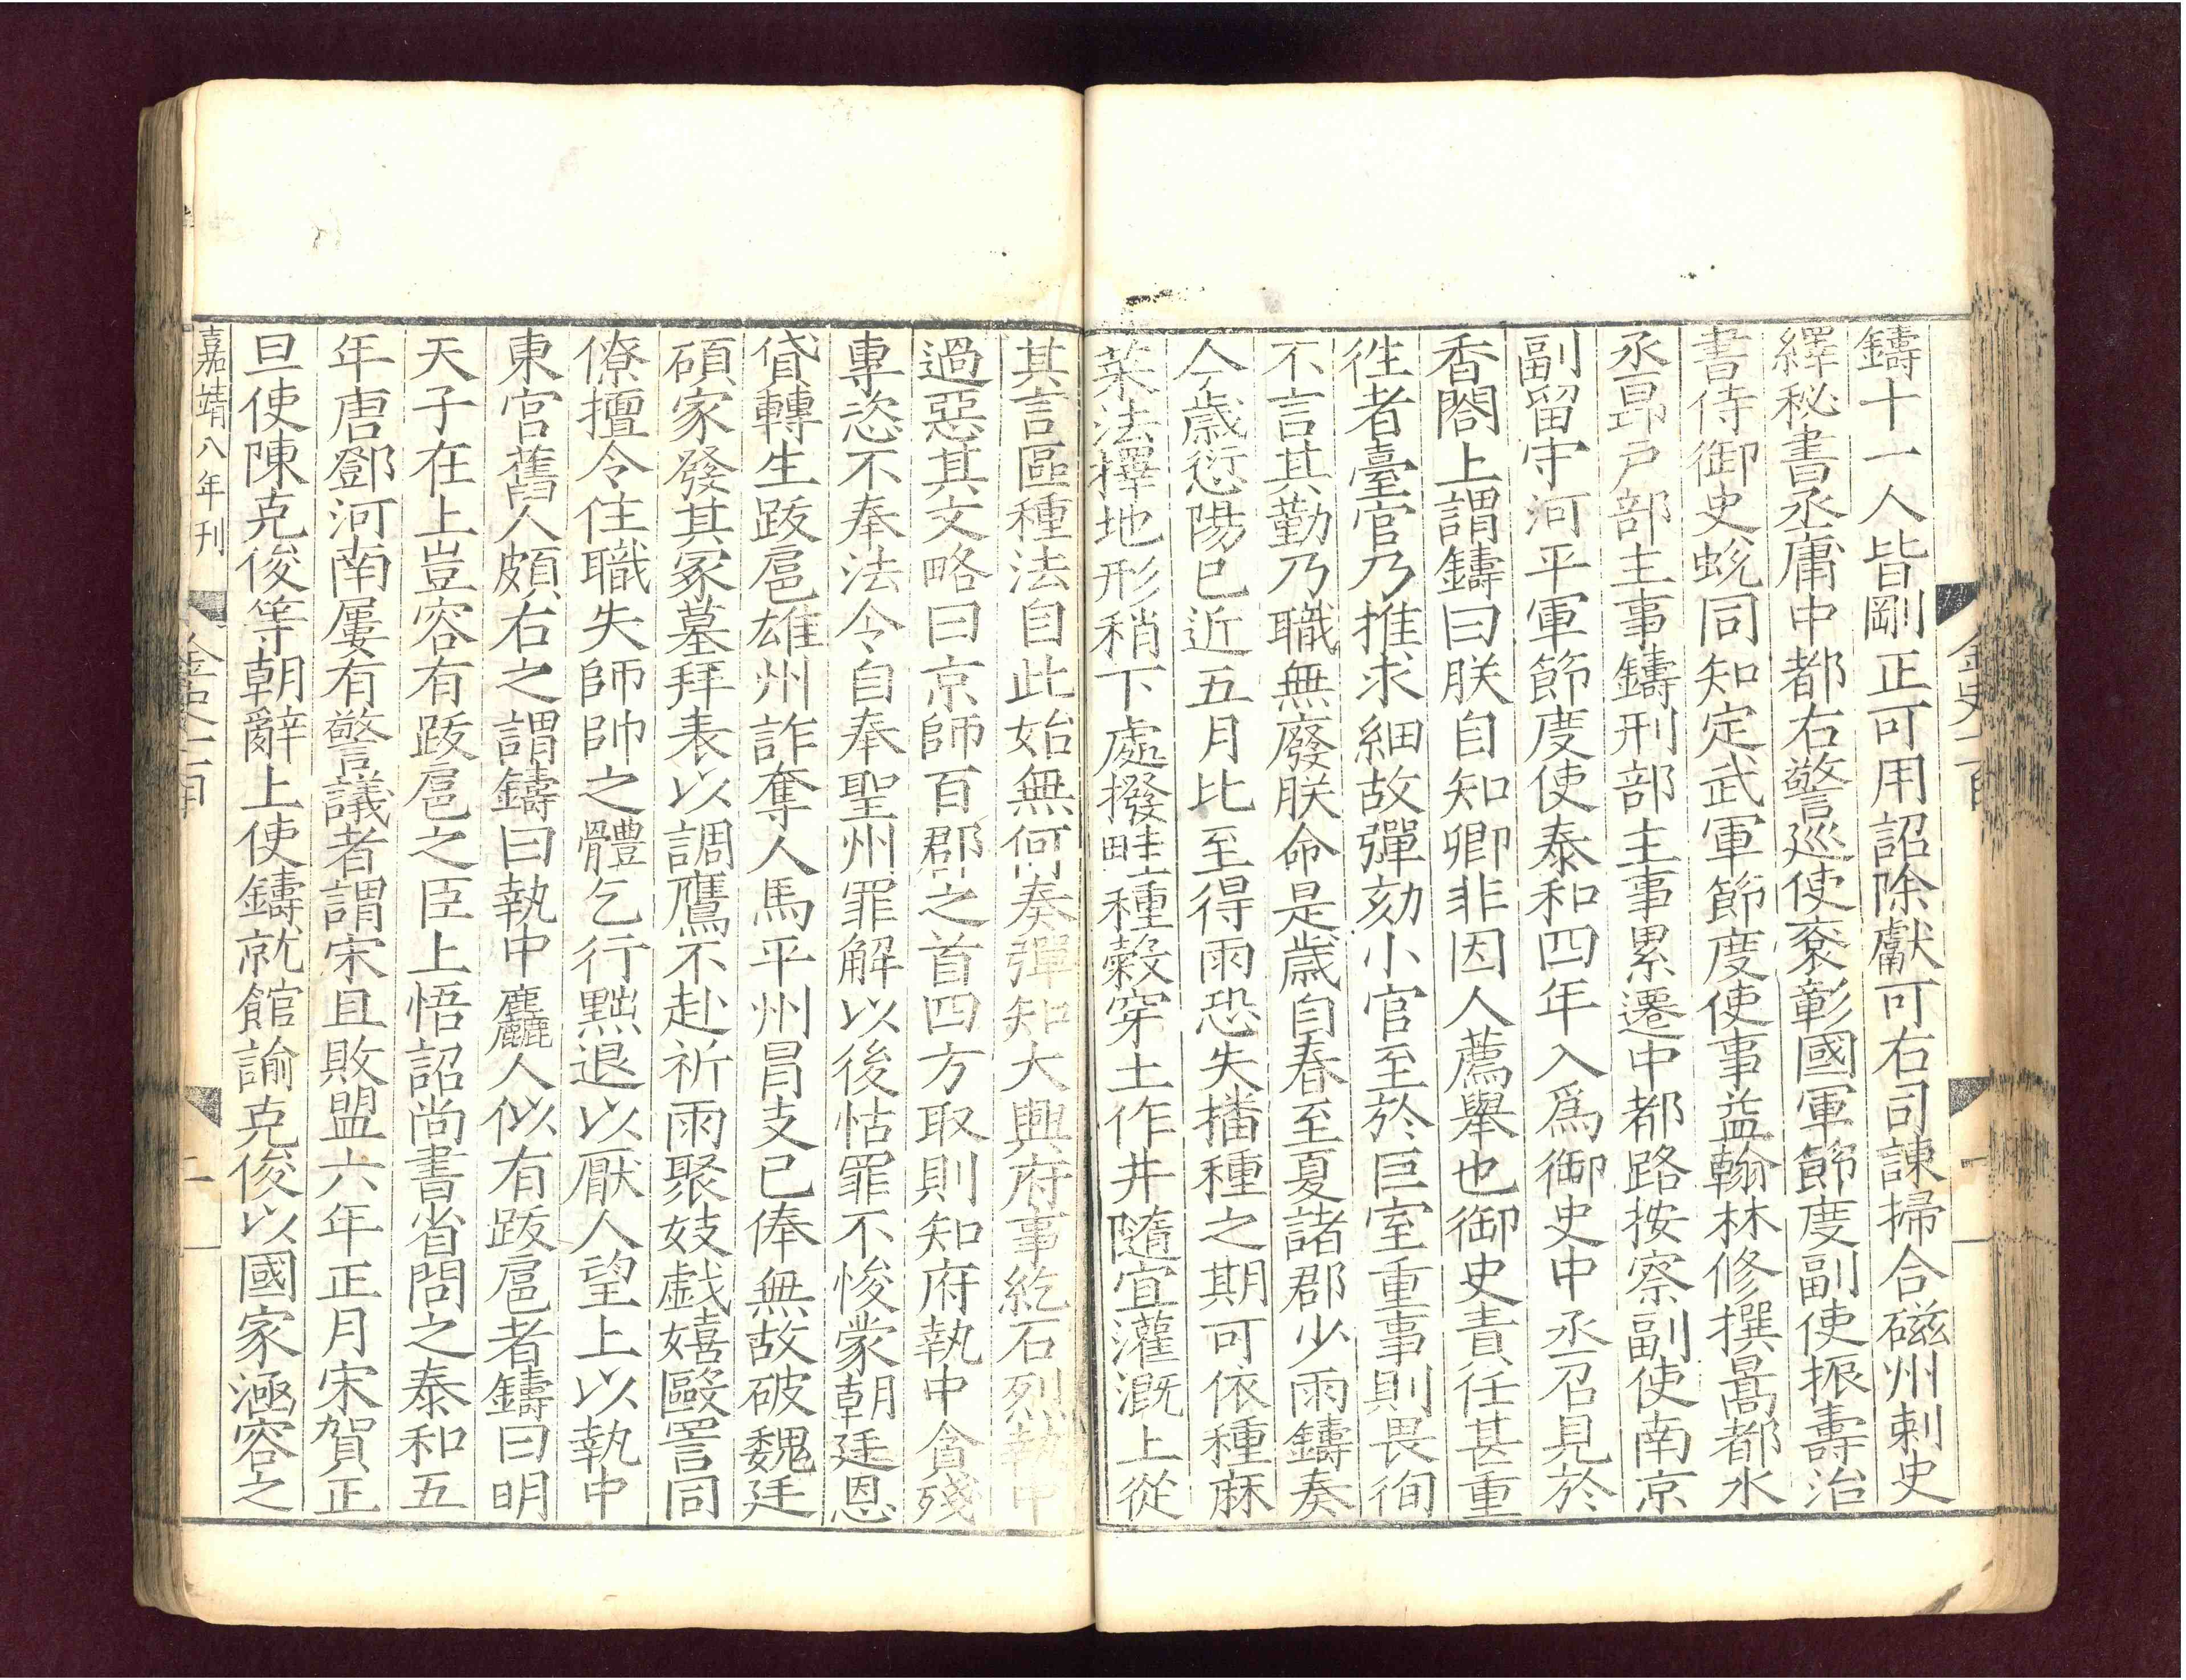 鑄十一人皆剛正可用詔除獻可右司諫掃合磁州刺史
繹秘書丞庸中都右警巡使衮彰國軍節度副使振壽治
書侍御史蛻同知定武軍節度使事益翰林修撰暠都水
丞昂戶部主事鑄刑部主事累遷中都路按察副使南京
副留守河平軍節度使泰和四年入爲御史中丞召見於
香閤上謂鑄曰朕自知卿非因人薦舉也御史責任甚重
徃者臺官乃推求細故彈劾小官至於巨室重事則畏徇
不言其勤乃職無廢朕命是歲自春至夏諸郡少雨鑄奏
今歲愆陽已近五月比至得雨恐失播種之期可依種麻
菜法擇地形稍下處撥畦種穀穿土作井隨宜灌溉上從
其言區種法自此始無何奏彈知大興府事紇石烈執中
過惡其文略曰京師百郡之首四方取則知府執中貪殘
專恣不奉法令自奉聖州罪解以後怙罪不悛蒙朝廷恩
貸轉生跋扈雄州詐奪人馬平州冒支已俸無故破魏廷
碩家發其冢墓拜表以調鷹不赴祈雨聚妓戱嬉毆詈同
僚擅令住職失師帥之體乞行黜退以厭人望上以執中
東宮舊人頗右之謂鑄曰執中麤人似有跋扈者鑄曰明
天子在上豈容有跋扈之臣上悟詔尚書省問之泰和五
年唐鄧河南屢有警議者謂宋且敗盟六年正月宋賀正
旦使陳克俊等朝辭上使鑄就館諭克俊以國家涵容之
嘉靖八年刊 金史一百 二